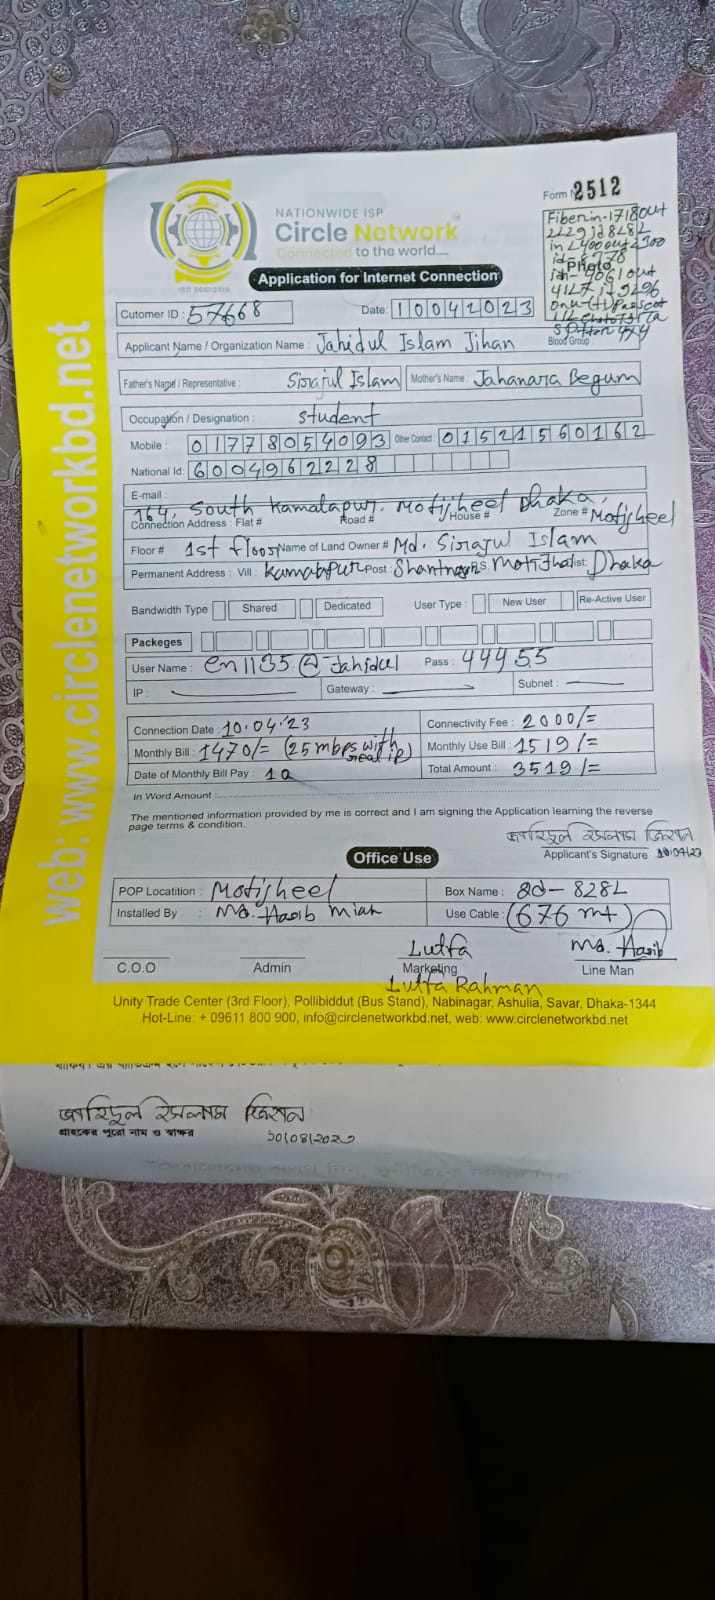 NATIONWIDE ISP
Circle Network
Connected to the world....
ISO 9001:2015
Form N 2512
Application for Internet Connection
Fiber in-17180ut
2229 id 828L
in 2400 out 2300
id-8778
Photo
Cutomer ID : 57668
Date: 10042023
Applicant Name / Organization Name : Jahidul Islam Jihan
Blood Group :
Father's Name / Representative : Sirajul Islam
Mother's Name : Jahanara Begum
Occupation / Designation : student
Mobile : 01778054093 Other Contact : 01521560162
National Id: 6004962228
E-mail :
164, South Kamalapur, Motijheel Dhaka,
Connection Address : Flat # Road # House # Zone # Motijheel
Floor # 1st floor Name of Land Owner # Md. Sirajul Islam
Permanent Address : Vill : Kamalapur Post: P.S. Dist: Dhaka
Bandwidth Type Shared Dedicated User Type : New User Re-Active User
Packeges
User Name : en1135@Jahidul Pass : 444555
IP : Gateway : Subnet :
Connection Date : 10.04.23 Connectivity Fee : 2000/=
Monthly Bill : 1470/= (25 mbps with real ip) Monthly Use Bill : 1519/=
Date of Monthly Bill Pay : 10 Total Amount : 3519/=
In Word Amount :
The mentioned information provided by me is correct and I am signing the Application learning the reverse
page terms & condition.
জাহিদুল ইসলাম জিহান
Applicant's Signature 10/04/23
Office Use
POP Locatition : Motijheel Box Name : 828L
Installed By : Md. Hasib Miah Use Cable : (676 mt)
Lutfa Md. Hasib
C.O.O Admin Marketing Line Man
Lutfa Rahman
Unity Trade Center (3rd Floor), Pollibiddut (Bus Stand), Nabinagar, Ashulia, Savar, Dhaka-1344
Hot-Line: + 09611 800 900, info@circlenetworkbd.net, web: www.circlenetworkbd.net
web: www.circlenetworkbd.net
জাহিদুল ইসলাম জিহান
গ্রাহকের পুরো নাম ও স্বাক্ষর
১০/০৪/২০২৩